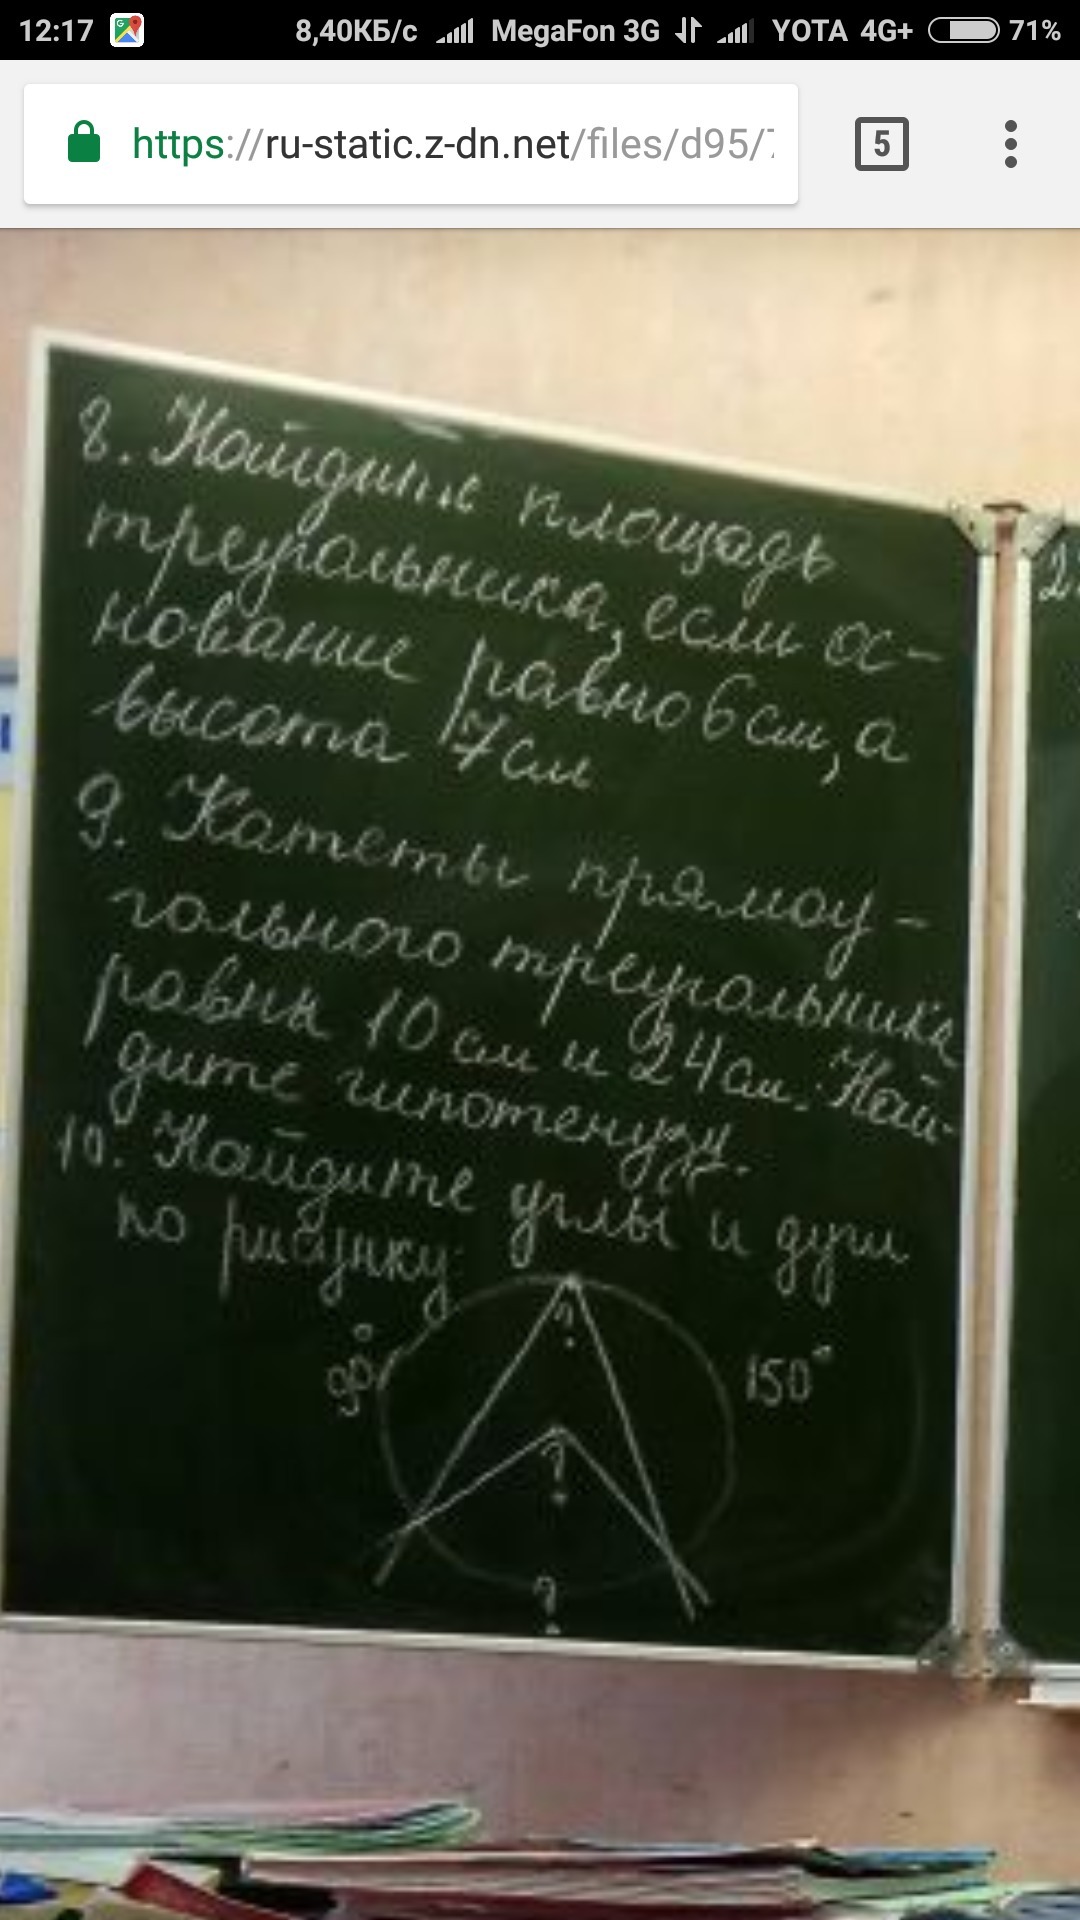 12:17 8,40КБ/с MegaFon 3G YOTA 4G+ 71%
https://ru-static.z-dn.net/files/d95/7
5
8. Найдите площадь
треугольника, если ос-
нование равно 6 см, а
высота 7 см
9. Катеты прямоу-
гольного треугольника
равны 10 см и 24 см. Най-
дите гипотенузу.
10. Найдите углы и дуги
по рисунку
?
90° 150°
?
?
2